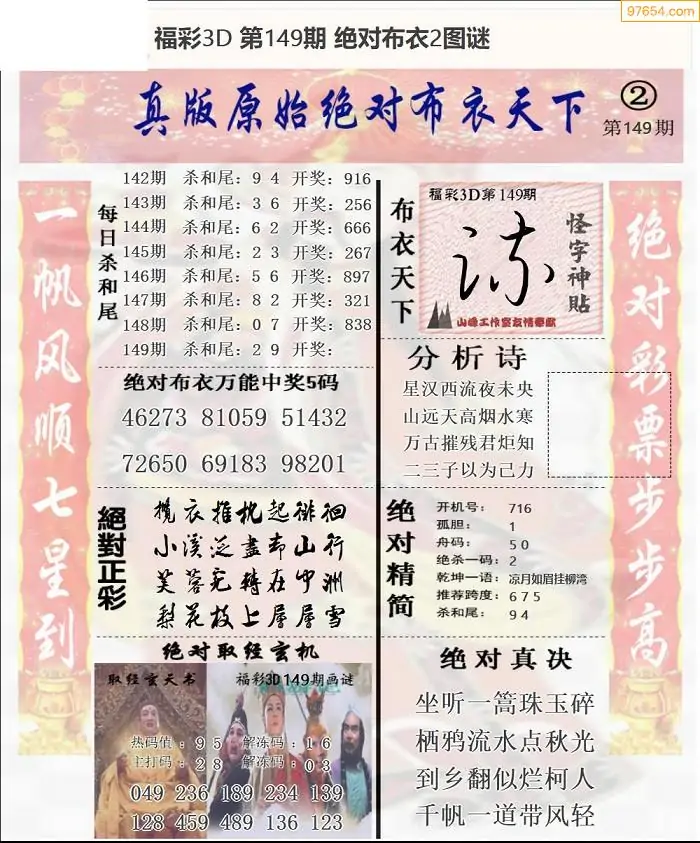 97654.com
福彩3D 第149期 绝对布衣2图谜
真版原始绝对布衣天下
②
第149期
一帆风顺七星到
每日杀和尾
142期 杀和尾: 9 4 开奖: 916
143期 杀和尾: 3 6 开奖: 256
144期 杀和尾: 6 2 开奖: 666
145期 杀和尾: 2 3 开奖: 267
146期 杀和尾: 5 6 开奖: 897
147期 杀和尾: 8 2 开奖: 321
148期 杀和尾: 0 7 开奖: 838
149期 杀和尾: 2 9 开奖:
绝对布衣万能中奖5码
46273 81059 51432
72650 69183 98201
絕對正彩
揽衣推枕起徘徊
小溪泛尽却山行
芙蓉宛转在中洲
梨花枝上层层雪
绝对取经玄机
取经玄天书
福彩3D149期画谜
热码值:9 5 解冻码:1 6
主打码:2 8 解冻码:0 3
049 236 189 234 139
128 459 489 136 123
布衣天下
福彩3D第149期
怪字神貼
山峰工作室友情奉献
分析诗
星汉西流夜未央
山远天高烟水寒
万古摧残君炬知
二三子以为己力
绝对精简
开机号: 716
孤胆: 1
舟码: 5 0
绝杀一码: 2
乾坤一语: 凉月如眉挂柳湾
推荐跨度: 6 7 5
杀和尾: 9 4
绝对真决
坐听一篙珠玉碎
栖鸦流水点秋光
到乡翻似烂柯人
千帆一道带风轻
绝对彩票步步高